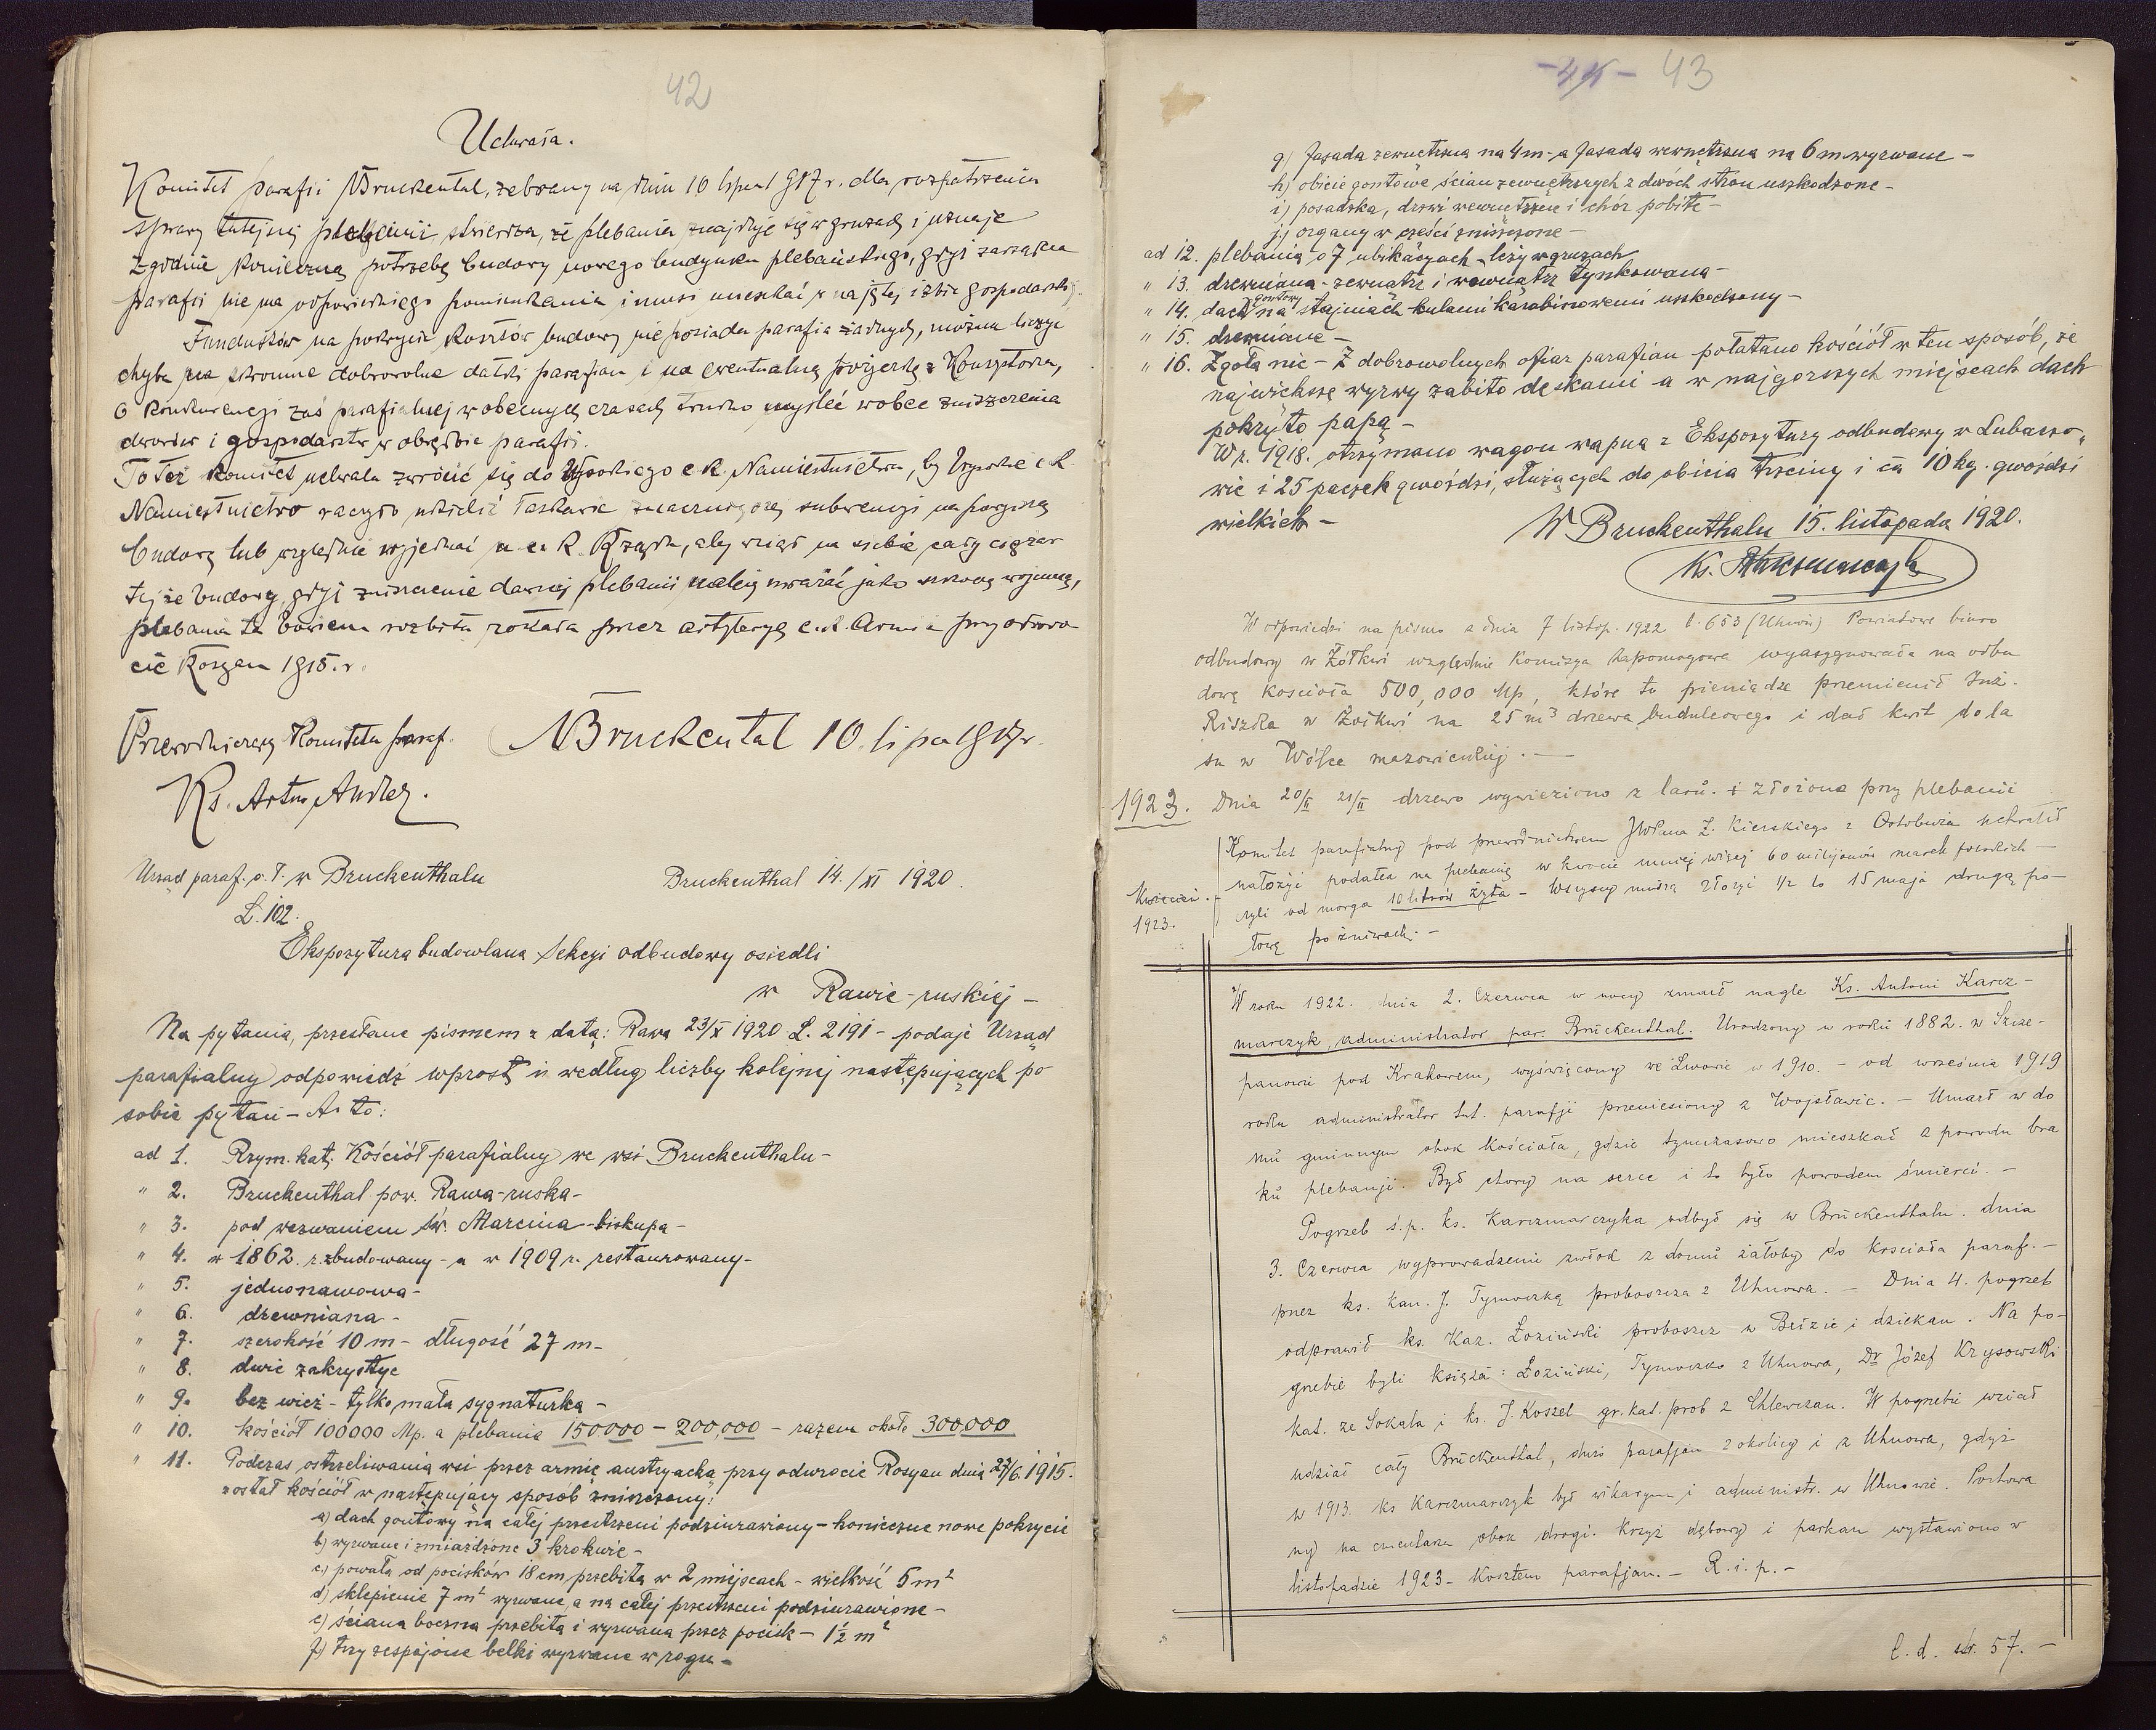 42
Uchwała.
Komitet parafii Bruckental, zebrany na dniu 10 lipca 1917 r. dla rozpatrzenia
sprawy tutejszej plebanii stwierdza, że plebania znajduje się w gruzach i uznaje
zgodnie konieczną potrzebę budowy nowego budynku plebańskiego, gdyż zarządca
parafii nie ma odpowiedniego pomieszkania i musi mieszkać w najętej izbie gospodarskiej.
Funduszów na pokrycie kosztów budowy nie posiada parafia żadnych, można liczyć
chyba na skromne dobrowolne datki parafian i na ewentualną pożyczkę z Konsystorza,
o konkurencji zaś parafialnej w obecnych czasach trudno myśleć wobec zniszczenia
dworów i gospodarstw w obrębie parafii.
To też komitet uchwala zwrócić się do Wysokiego c. k. Namiestnictwa, by Wysokie c. k.
Namiestnictwo raczyło udzielić łaskawie znaczniejszej subwencji na powyższą
budowę lub względnie wyjednać u c. k. Rządu, aby wziął na siebie cały ciężar
tejże budowy, gdyż zniszczenie dawnej plebanii należy uważać jako szkodę wojenną,
plebania ta bowiem rozbita została przez artyleryę c. i k. Armii przy odwro
cie Rosyan 1915. r.
Przewodniczący Komitetu paraf. Bruckental 10. lipca 1917 r.
Ks. Artur Andlez.
Urząd paraf. o. ł. w Bruckenthalu Bruckenthal 14./XI 1920.
L. 102.
Ekspozytura budowlana Sekcyi odbudowy osiedli
w Rawie-ruskiej –
Na pytania, przesłane pismem z datą: Rawa 23/X 1920 L. 2191 – podaje Urząd
parafialny odpowiedź wprost i według liczby kolejnej następujących po
sobie pytań – A to:
ad 1. Rzym. kat. Kościół parafialny we wsi Bruckenthalu –
" 2. Bruckenthal pow. Rawa-ruska –
" 3. pod wezwaniem św. Marcina biskupa –
" 4. w 1862. r. zbudowany – a w 1909 r. restaurowany –
" 5. jednonawowa –
" 6. drewniana –
" 7. szerokość 10 m – długość 27 m –
" 8. dwie zakrystye
" 9. bez wież – tylko mała sygnaturka –
" 10. kościół 100000 Mp. a plebania 150000 – 200,000 – razem około 300,000
" 11. Podczas ostrzeliwania wsi przez armię austryacką przy odwrocie Rosyan dnia 27/6. 1915.
został kościół w następujący sposób zniszczony:
a) dach gontowy na całej przestrzeni podziurawiony – konieczne nowe pokrycie
b) wyrwane i zmiażdżone 3 krokwie –
c) powała od pocisków 18 cm przebita w 2 miejscach – wielkość 5 m²
d) sklepienie 7 m² wyrwane, a na całej przestrzeni podziurawione –
e) ściana boczna przebita i wyrwana przez pocisk – 1½ m²
f) trzy zespojone belki wyrwane w rogu –
43
g) fasada zewnętrzna na 4 m – a fasada wewnętrzna na 6 m wyrwane –
h) obicie gontowe ścian zewnętrznych z dwóch stron uszkodzone –
i) posadzka, drzwi wewnętrzne i chór pobite –
j) organy w części zniszczone –
ad 12. plebania o 7 ubikacyach leży w gruzach
" 13. drewniana – zewnątrz i wewnątrz tynkowana –
" 14. dach gontowy na stajniach kulami karabinowemi uszkodzony –
" 15. drewniane –
" 16. Zgoła nic – Z dobrowolnych ofiar parafian połatano kościół w ten sposób, że
największe wyrwy zabito deskami a w najgorszych miejscach dach
pokryto papą –
W r. 1918. otrzymano wagon wapna z Ekspozytury odbudowy w Lubaczo„
wie i 25 paczek gwoździ, służących do obicia trzciny i ca 10 kg. gwoździ
wielkich –
W Bruckenthalu 15. listopada 1920.
Ks. AKarczmarczyk
W odpowiedzi na pismo z dnia 7 listop. 1922 l. 653 (Uhnów) Powiatowe biuro
odbudowy w Żółkwi względnie Komisya zapomogowa wyasygnowała na odbu
dowę kościoła 500,000 Mp, które to pieniądze przemienił Inż.
Riszka w Żółkwi na 25 m³ drzewa budulcowego i dał kwit do la
su w Wólce mazowieckiej. –
1923. Dnia 20/II 21/II drzewo wywieziono z lasu. i złożono przy plebanii
Kwiecień. 1923.
Komitet parafialny pod przewodnictwem JWPana Z. Kierskiego z Ostobuża uchwalił
nałożyć podatek na plebanię w kwocie mniej więcej 60 milijonów marek polskich –
czyli od morga 10 litrów żyta – Wszyscy muszą złożyć ½ do 15 maja drugą po–
łowę po żniwach. –
W roku 1922. dnia 2. Czerwca w nocy zmarł nagle Ks. Antoni Karcz–
marczyk, administrator par. Brückenthal. Urodzony w roku 1882. w Szcze–
panowie pod Krakowem, wyświęcony we Lwowie w 1910. – od września 1919
roku administrator tut. parafji przeniesiony z Wojsławic. – Umarł w do
mu gminnym obok kościoła, gdzie tymczasowo mieszkał z powodu bra
ku plebanji. Był chory na serce i to było powodem śmierci. –
Pogrzeb ś.p. ks. Karczmarczyka odbył się w Brückenthalu. dnia
3. Czerwca wyprowadzenie zwłok z domu żałoby do kościoła paraf. –
przez ks. kan. J. Tymoczkę proboszcza z Uhnowa. – Dnia 4. pogrzeb
odprawił ks. Kaz. Łoziński proboszcz w Bełzie i dziekan. Na po–
grzebie byli księża: Łoziński, Tymoczko z Uhnowa, Dr Józef Krysowski
kat. ze Sokala i ks. J. Koszel gr. kat. prob z Chlewczan. W pogrzebie wziął
udział cały Brückenthal, dużo parafjan z okolicy i z Uhnowa, gdyż
w 1913. ks Karczmarczyk był wikarym i administr. w Uhnowie. Pochowa
ny na cmentarzu obok drogi. Krzyż dębowy i parkan wystawiono w
listopadzie 1923 – kosztem parafjan. – R. i. p. –
C. d. str. 57. –